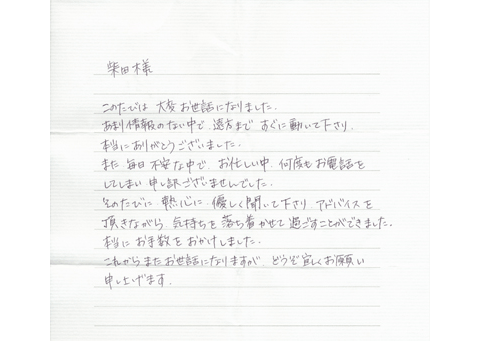 柴田様
このたびは 大変お世話になりました.
あまり情報のない中で、遠方まで すぐに動いて下さり.
本当にありがとうございました.
また 毎日 不安な中で お忙しい中. 何度もお電話を
してしまい 申し訳ございませんでした.
そのたびに 熱心に 優しく聞いて下さり アドバイスを
頂きながら 気持ちを落ち着かせて過ごすことができました.
本当にお手数をおかけしました.
これからまたお世話になりますが. どうぞ宜しくお願い
申し上げます.